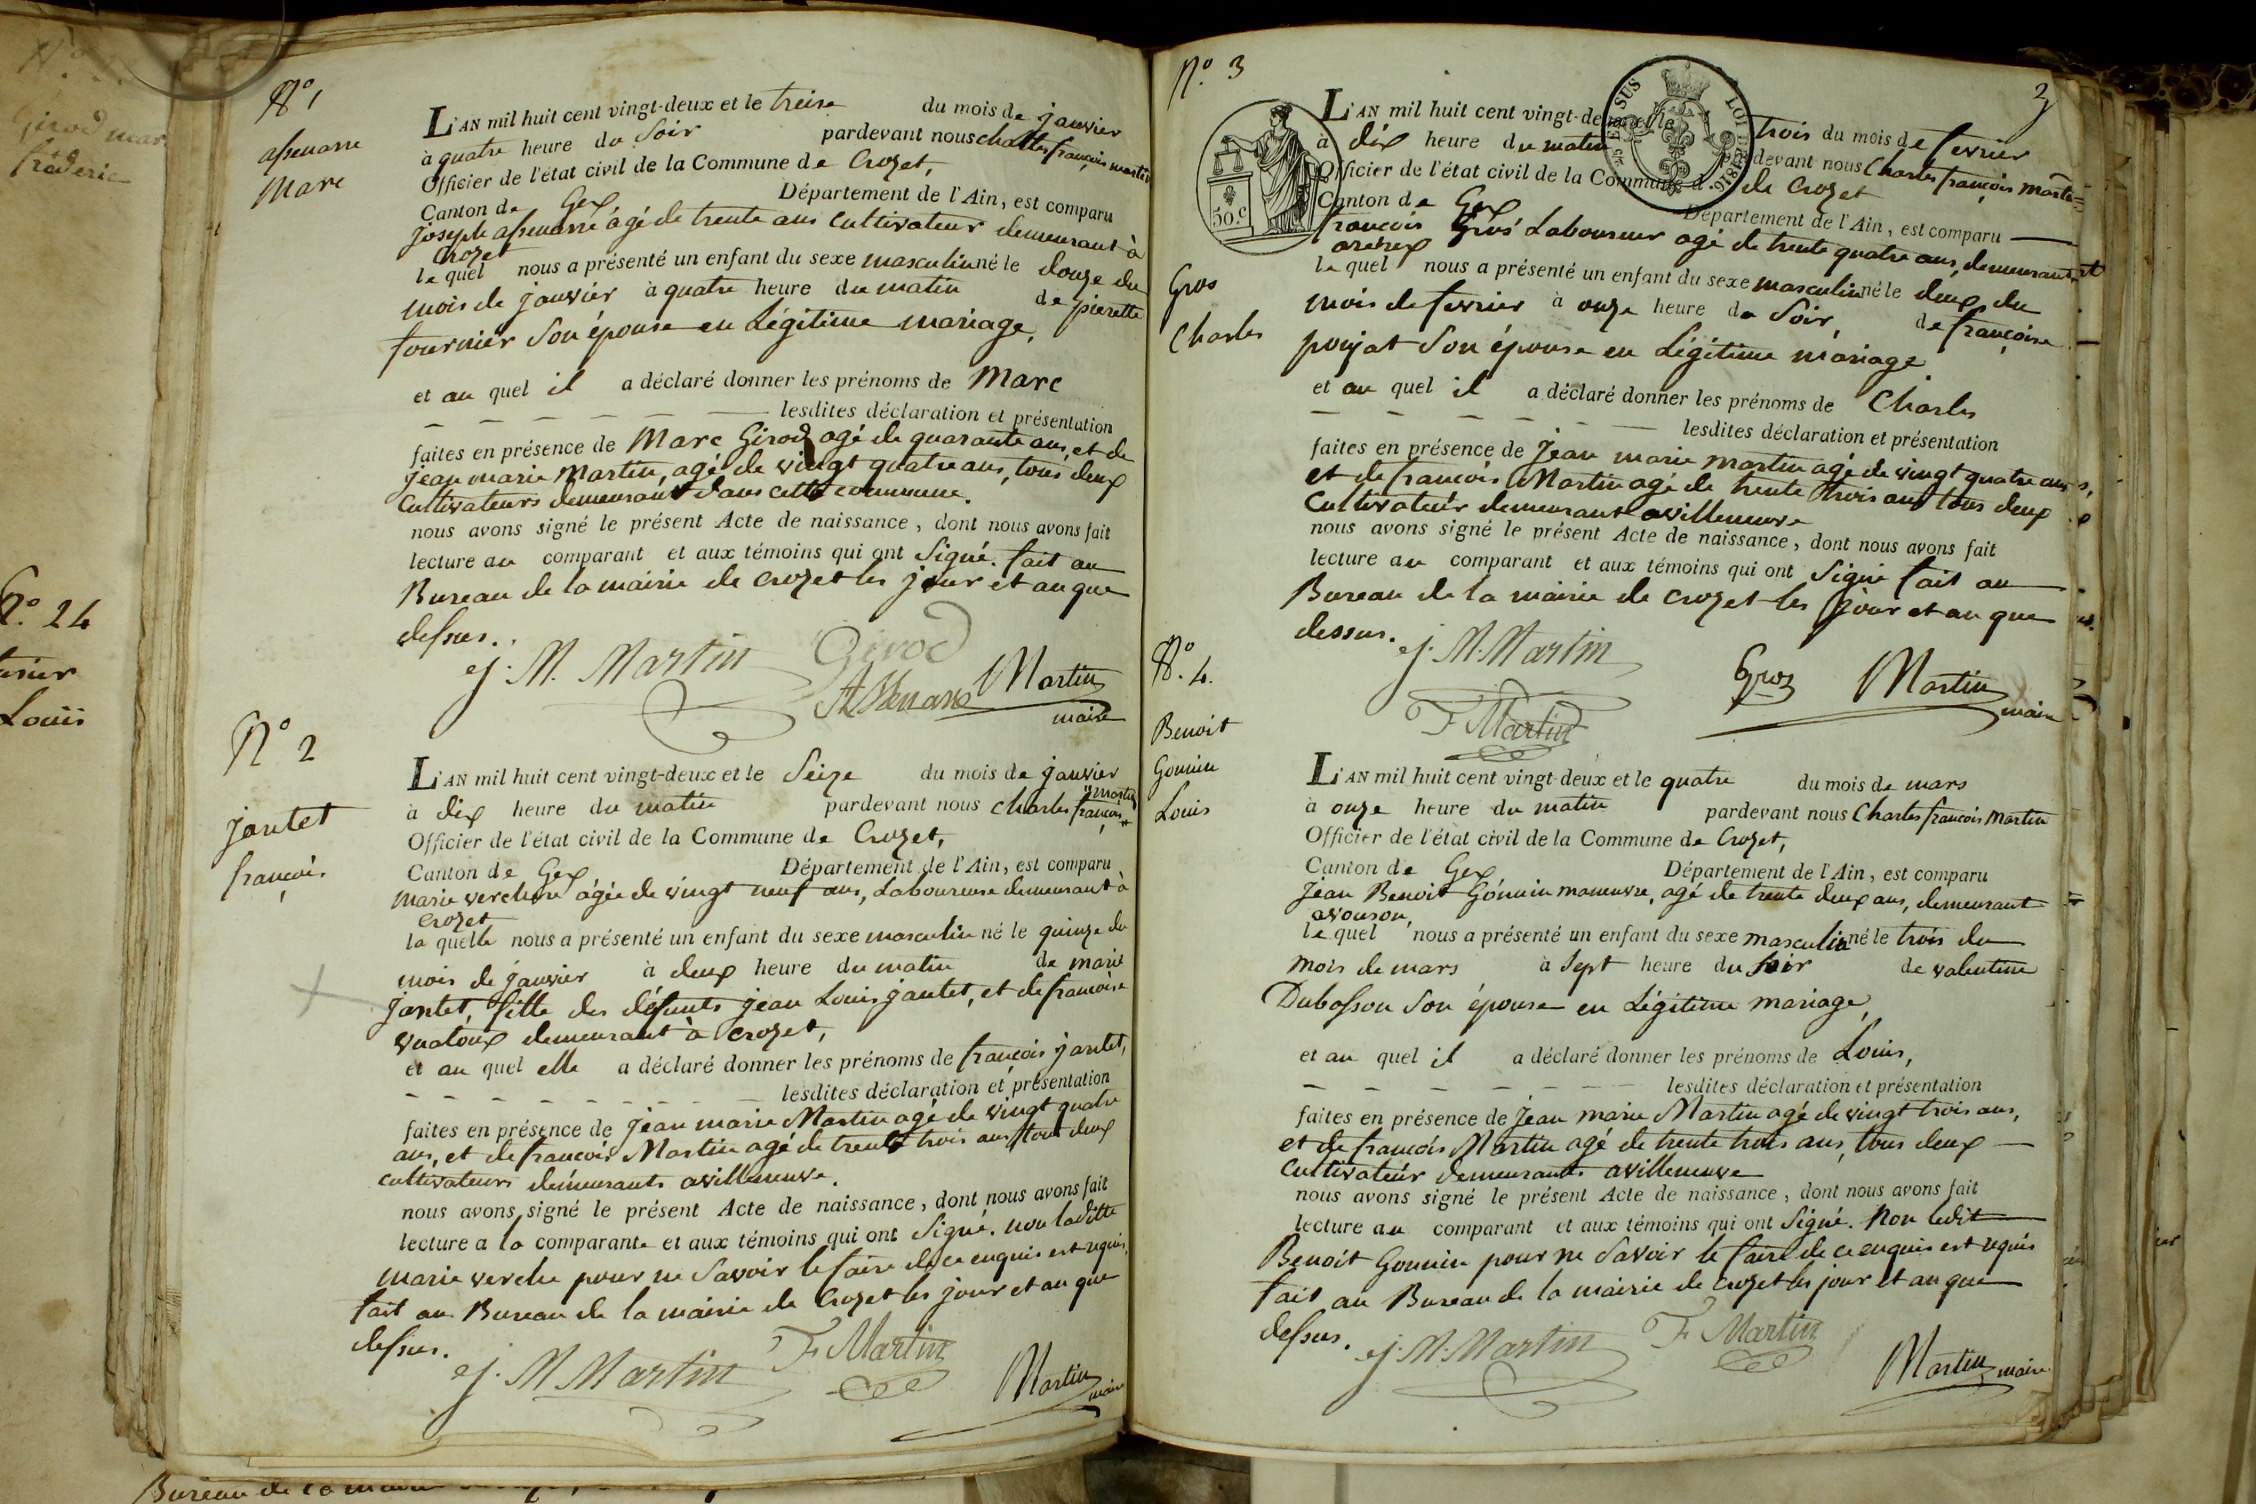 N° 1
assenarre
Marc
L'AN mil huit cent vingt-deux et le treise du mois de janvier
à quatre heure du Soir pardevant nous charles françois martin
Officier de l'état civil de la Commune de Crozet,
Canton de Gex, Département de l'Ain, est comparu
joseph assenarre agé de trente ans cultivateur demeurant à
Crozet
le quel nous a présenté un enfant du sexe masculin né le douze du
mois de janvier à quatre heure du matin de pierette
fournier Son épouse en Légitime mariage,
et au quel il a déclaré donner les prénoms de Marc
lesdites déclaration et présentation
faites en présence de Marc Girod agé de quarante ans, et de
jean marie Martin, agé de vingt quatre ans, tous deux
Cultivateurs demeurant dans cette commune.
nous avons signé le présent Acte de naissance, dont nous avons fait
lecture au comparant et aux témoins qui ont Signé. fait au
Bureau de la mairie de crozet les jour et an que
dessus.
j. M. Martin Girod
Assenare Martin
maire
N° 2
jantet
françois
L'AN mil huit cent vingt-deux et le Seize du mois de janvier
à dix heure du matin pardevant nous charles françois martin
Officier de l'état civil de la Commune de Crozet,
Canton de Gex, Département de l'Ain, est comparu
marie verchere agée de vingt neuf ans, Laboureuse demeurant à
crozet
la quelle nous a présenté un enfant du sexe masculin né le quinze du
mois de janvier à deux heure du matin de marie
jantet, fille des défunts jean Louis jantet, et de françoise
demeurant à crozet,
et au quel elle a déclaré donner les prénoms de françois jantet,
lesdites déclaration et présentation
faites en présence de jean marie Martin agé de vingt quatre
ans, et de françois Martin agé de trente trois ans tous deux
cultivateurs demeurants avilleneuve.
nous avons signé le présent Acte de naissance, dont nous avons fait
lecture a la comparante et aux témoins qui ont Signé. non laditte
marie verche pour ne Savoir le faire de ce enquis est requis,
fait au Bureau de la mairie de Crozet les jour et an que
dessus.
j. M Martin F Martin Martin
maire
N° 3
3
L'AN mil huit cent vingt-deux et le trois du mois de fevrier
à dix heure du matin pardevant nous Charles françois Martin
Officier de l'état civil de la Commune de Crozet
Canton de Gex Département de l'Ain, est comparu
françois Gros Laboureur agé de trente quatre ans, demeurant
le quel nous a présenté un enfant du sexe masculin né le deux du
mois de fevrier à onze heure du Soir, de françoise
poujat Son épouse en Légitime mariage
et au quel il a déclaré donner les prénoms de Charles
lesdites déclaration et présentation
faites en présence de jean marie martin agé de vingt quatre ans,
et de françois Martin agé de trente trois ans tous deux
Cultivateur demeurant avilleneuve
nous avons signé le présent Acte de naissance, dont nous avons fait
lecture au comparant et aux témoins qui ont Signé fait au
Bureau de la mairie de crozet les jour et an que
dessus.
j. M. Martin
Gros Martin
maire
F Martin
50. c
LOI DE 1816
Gros
Charles
N°. 4.
Benoit
Gounin
Louis
L'AN mil huit cent vingt-deux et le quatre du mois de mars
à onze heure du matin pardevant nous Charles françois Martin
Officier de l'état civil de la Commune de Crozet,
Canton de Gex Département de l'Ain, est comparu
jean Benoit Gounin maneuvre, agé de trente deux ans, demeurant
avouson,
le quel nous a présenté un enfant du sexe masculin né le trois du
mois de mars à Sept heure du Soir de valentine
Dubosson Son épouse en Légitime mariage,
et au quel il a déclaré donner les prénoms de Louis,
lesdites déclaration et présentation
faites en présence de jean marie Martin agé de vingt trois ans,
et de françois Martin agé de trente trois ans, tous deux
cultivateur demeurants avilleneuve
nous avons signé le présent Acte de naissance, dont nous avons fait
lecture au comparant et aux témoins qui ont Signé. Non ledit
Benoit Gounin pour ne Savoir le faire de ce enquis est requis
fait au Bureau de la mairie de Crozet les jour et an que
dessus.
j. M. Martin F Martin
Martin maire
Girod mar
frederic
N°. 24
Louis